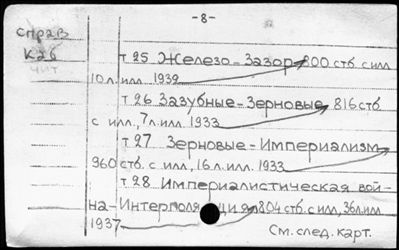 -8-
Справ
Каб
чит
т 25 Железо-Зазор 800 стб. с илл
10 л. илл 1932
т 26 Зазубные-Зерновые 816 стб
с илл., 7 л. илл. 1933
т 27 Зерновые-Империализм
960 стб. с илл., 16 л. илл. 1933
т 28 Империалистическая вой-
на-Интерполяция 804 стб. с илл, 36 л. илл
1937
См. след. карт.